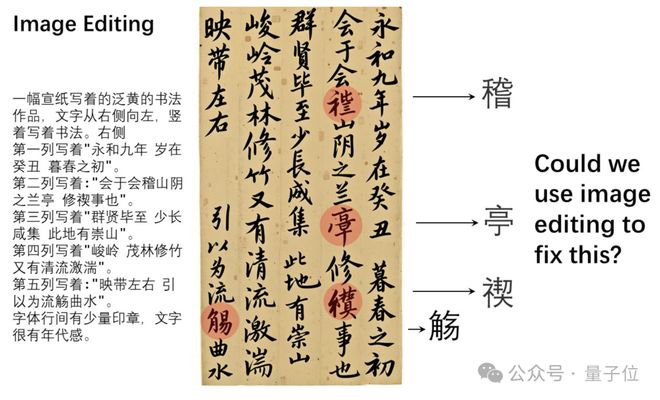 Image Editing
一幅宣纸写着的泛黄的书法
作品，文字从右侧向左，竖
着写着书法。右侧
第一列写着"永和九年 岁在
癸丑 暮春之初"。
第二列写着:"会于会稽山阴
之兰亭 修禊事也"。
第三列写着"群贤毕至 少长
咸集 此地有崇山"。
第四列写着"峻岭 茂林修竹
又有清流激湍"。
第五列写着:"映带左右 引
以为流觞曲水"。
字体行间有少量印章，文字
很有年代感。
永和九年岁在癸丑 暮春之初
会于会山阴之兰修事也
群贤毕至少長咸集 此地有崇山
峻岭茂林修竹又有清流激湍
映带左右 引以为流曲水
稽
亭
禊
觞
Could we
use image
editing to
fix this?
公众号·量子位